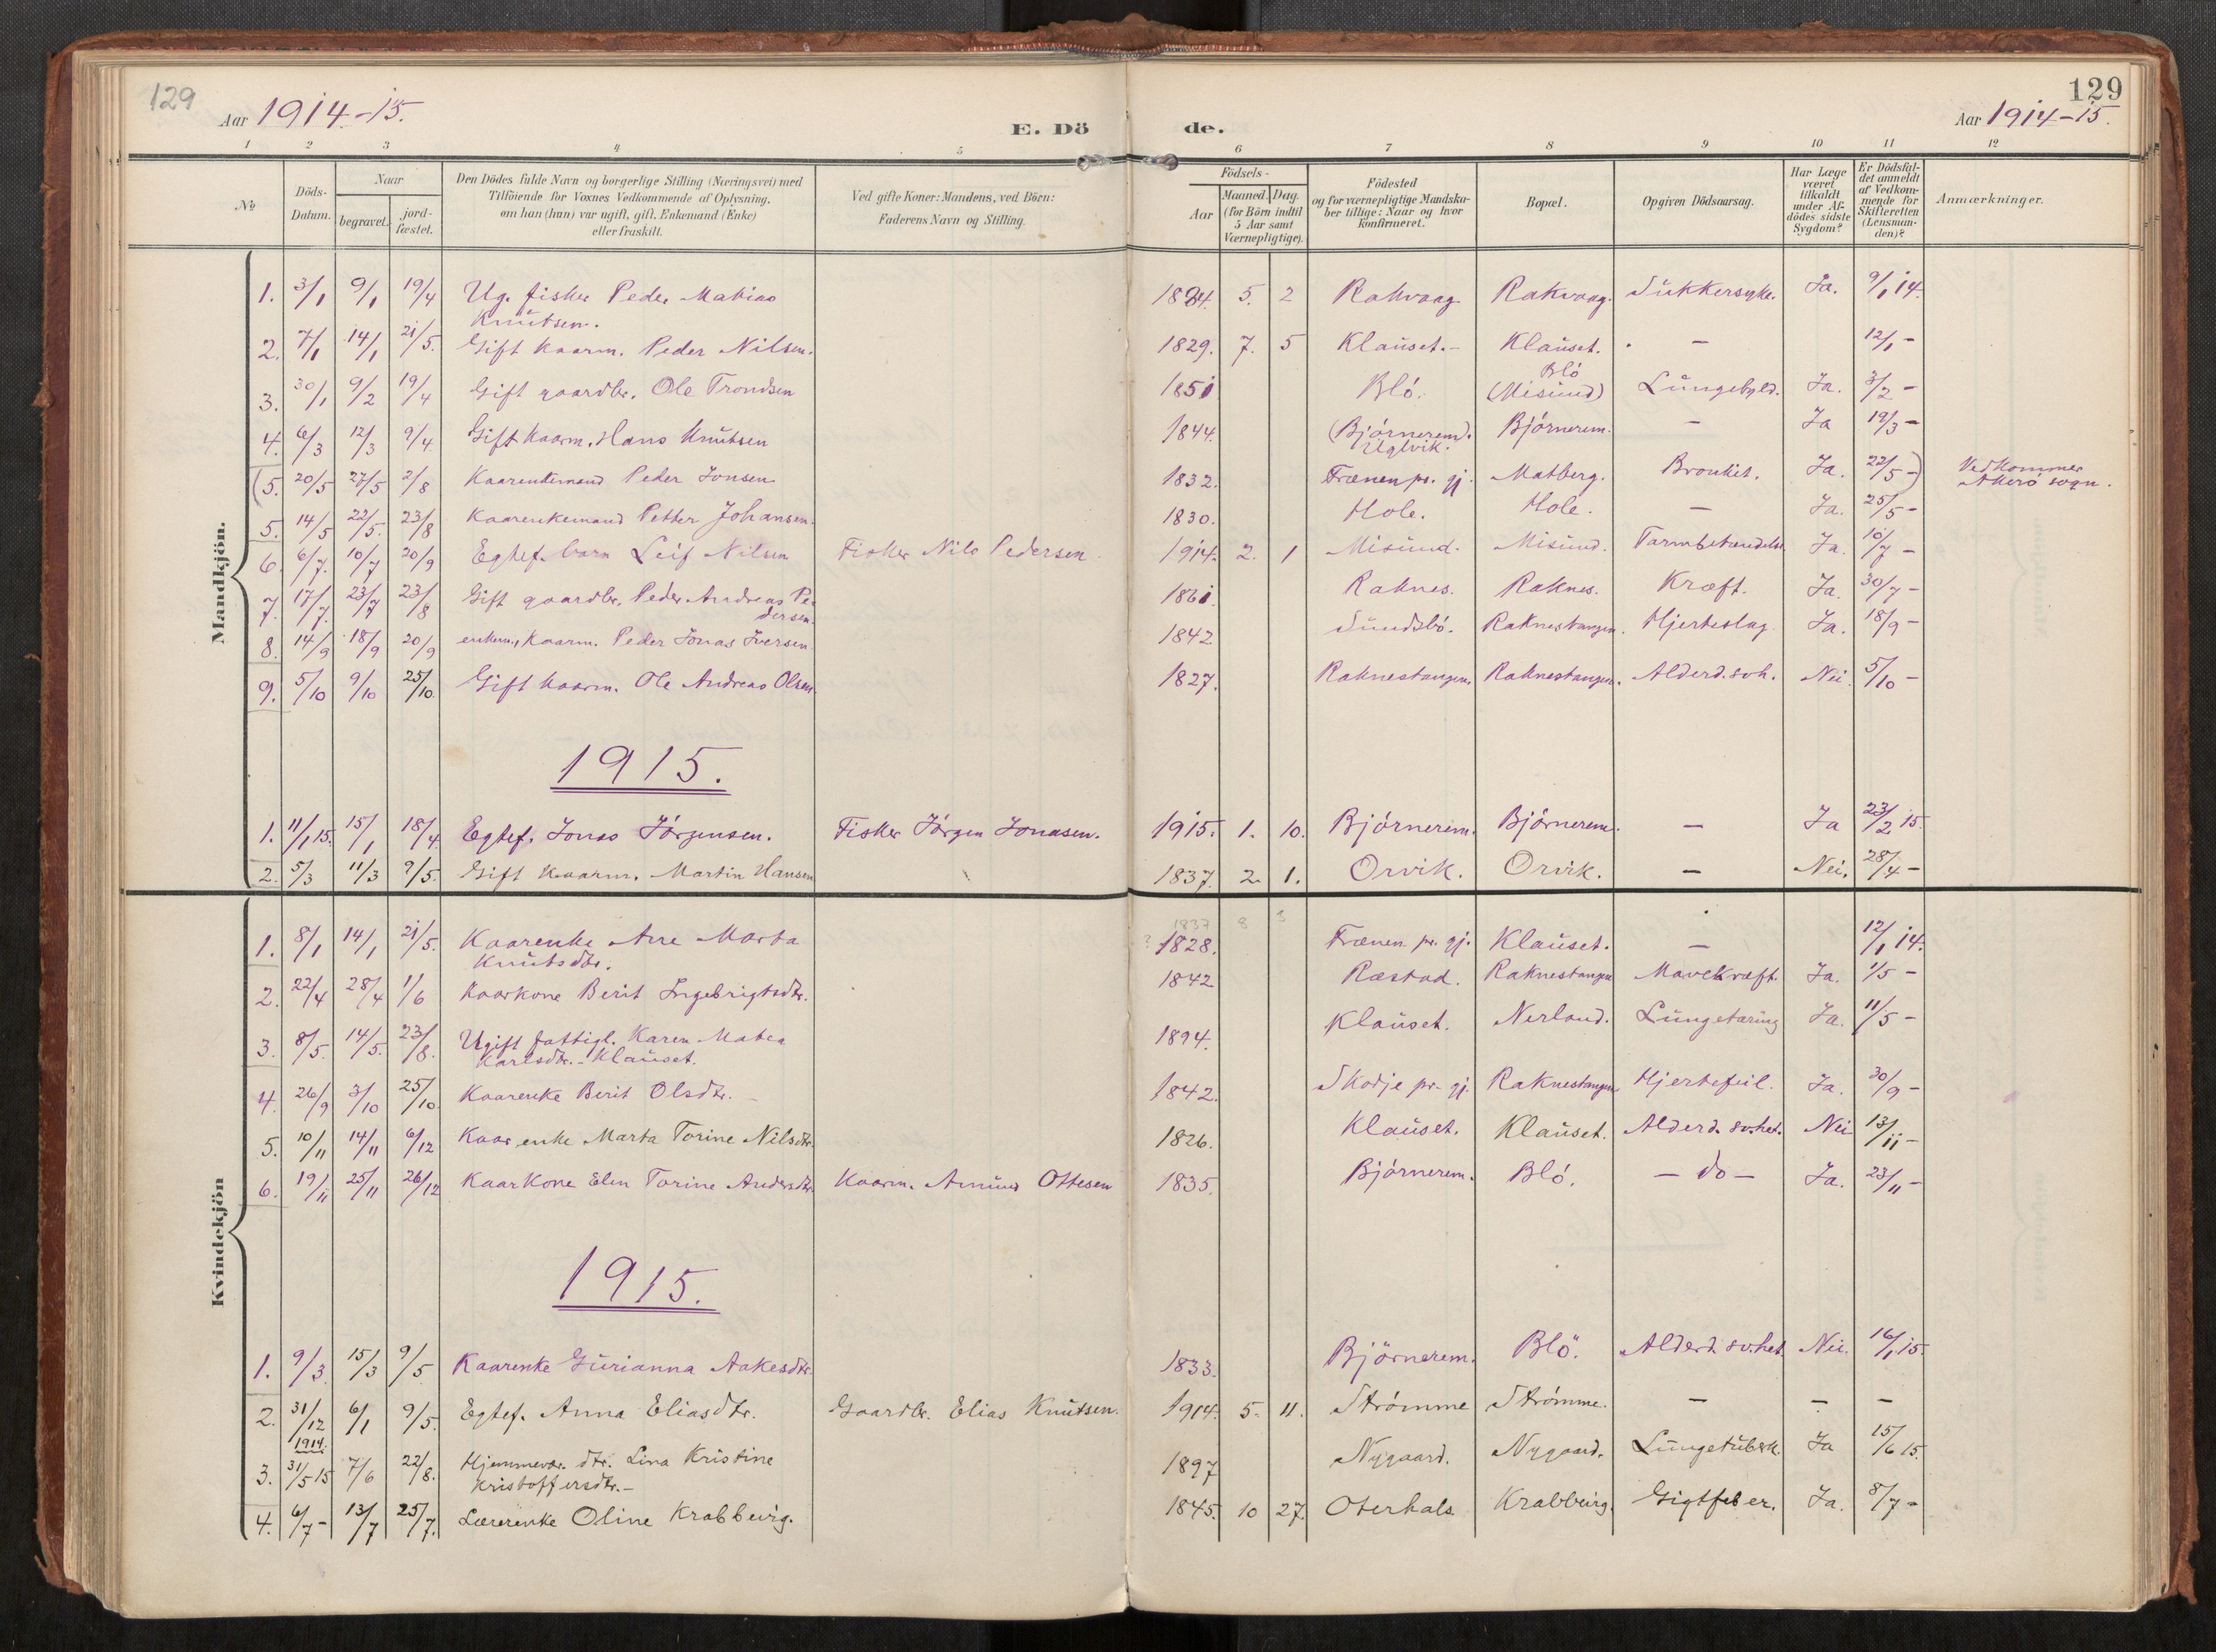 129
Aar 1914-15.
E. Dö
de.
129
Aar 1914-15.
1 2 3 4 5 6 7 8 9 10 11 12
No
Döds-
Datum.
Naar
begravet.
jord-
fæstet.
Den Dödes fulde Navn og borgerlige Stilling (Næringsvei) med
Tilföiende for Voxnes Vedkommende af Oplysning,
om han (hun) var ugift, gift, Enkemand (Enke)
eller fraskilt.
Ved gifte Koner: Mandens, ved Börn:
Faderens Navn og Stilling.
Födsels-
Aar
Maaned. Dag.
(for Börn indtil
5 Aar samt
Værnepligtige).
Födested
og for værnepligtige Mandska-
ber tillige: Naar og hvor
konfirmeret.
Bopæl.
Opgiven Dödsaarsag.
Har Læge
været
tilkaldt
under Af-
dödes sidste
Sygdom?
Er Dödsfal-
det anmeldt
af Vedkom-
mende for
Skifteretten
(Lensman-
den)?
Anmærkninger.
Mandkjön.
1. 3/1 9/1 19/4 Ug. fisker Peder Mathias Knutsen. 1894. 5. 2 Rakvaag Rakvaag. Sukkersyke. Ja. 9/1 14.
2. 7/1 14/1 21/5. Gift kaarm. Peder Nilsen. 1829. 7. 5 Klauset. - Klauset. - 12/1 -
3. 30/1 9/2 19/4 Gift gaardbr. Ole Trondsen 1851 Bló. Bló (Misund) Lungebyld. Ja. 3/2 -
4. 6/3 12/3 9/4 Gift kaarm. Hans Knutsen 1844. (Björnerem). Uglvik. Björnerem. - Ja 19/3 -
(5. 20/5 27/5 2/8 Kaarenkemand Peder Jonsen 1832. Frænen pr. gj. Matberg. Bronkit. Ja. 22/5 -) Vedkommer Akerö sogn.
5. 14/5 22/5. 23/8 Kaarenkemand Petter Johansen. 1830. Hole. Hole. - Ja. 25/5 -
6. 6/7. 10/7 20/9 Egtef. barn Leif Nilsen Fisker Nils Pedersen. 1914. 2. 1 Misund. Misund. Tarmbetændelse Ja. 10/7 -
7. 17/7. 23/7 23/8 Gift gaardbr. Peder Andreas Pedersen. 1861. Raknes. Raknes. Kræft. Ja. 30/7 -
8. 14/9 18/9 20/9 enkem., kaarm. Peder Jonas Iversen 1842. Sundsbö. Raknestangen. Hjerteslag. Ja. 18/9 -
9. 5/10 9/10 25/10. Gift kaarm. Ole Andreas Olsen. 1827. Raknestangen. Raknestangen. Alderd.svh. Nei. 5/10 -
1915.
1. 11/1 15. 15/1 18/4 Egtef. Jonas Jörgensen. Fisker Jörgen Jonasen. 1915. 1. 10. Björnerem. Björnerem. - Ja 23/2 15.
2. 5/3 11/3 9/5. Gift kaarm. Martin Hansen 1837. 2. 1. Orvik. Orvik. - Nei. 28/4 -
Kvindekjön
1837 8 3
1. 8/1 14/1 21/5. Kaarenke Ane Marta Knutsdtr. ? 1828. Frænen pr. gj. Klauset. - 12/1 14.
2. 22/4 28/4 1/6 Kaarkone Berit Ingebrigtsdtr. 1842 Ræstad. Raknestangen Mavekræft. Ja. 1/5 -
3. 8/5. 14/5. 23/8. Ugift fattigl. Karen Matea Karlsdtr. - Klauset. 1894. Klauset. Nerland. Lungetæring Ja. 11/5 -
4. 26/9 3/10 25/10. Kaarenke Berit Olsdtr. - 1842. Skodje pr. gj. Raknestangen Hjertefeil. Ja. 30/9 -
5. 10/11 14/11 6/12 Kaar enke Marta Torine Nilsdtr. 1826. Klauset. Klauset. Alderd. sv.het. Nei 13/11 -
6. 19/11 25/11 26/12 Kaarkone Elen Torine Andersdtr. Kaarm. Amund Ottesen 1835. Björnerem. Bló. - do - Ja. 23/11 -
1915.
1. 9/3. 15/3 9/5 Kaarenke Gurianna Aakesdtr. 1833. Björnerem. Blö. Alderd. sv.het. Nei. 16/1 15.
2. 31/12 1914. 6/1 9/5. Egtef. Anna Eliasdtr. Gaardbr. Elias Knutsen. 1914. 5. 11. Strömme Strömme. - - -
3. 31/5 15 7/6 22/8. Hjemmevær. dtr. Lina Kristine Kristoffersdtr. - 1897 Nygaard. Nygaard. Lungetuberk. Ja 15/6 15.
4. 6/7 - 13/7 25/7. Lærerenke Oline Krabbevig. 1845. 10 27. Oterhals Krabbevig. Gigtfeber. Ja. 8/7 -